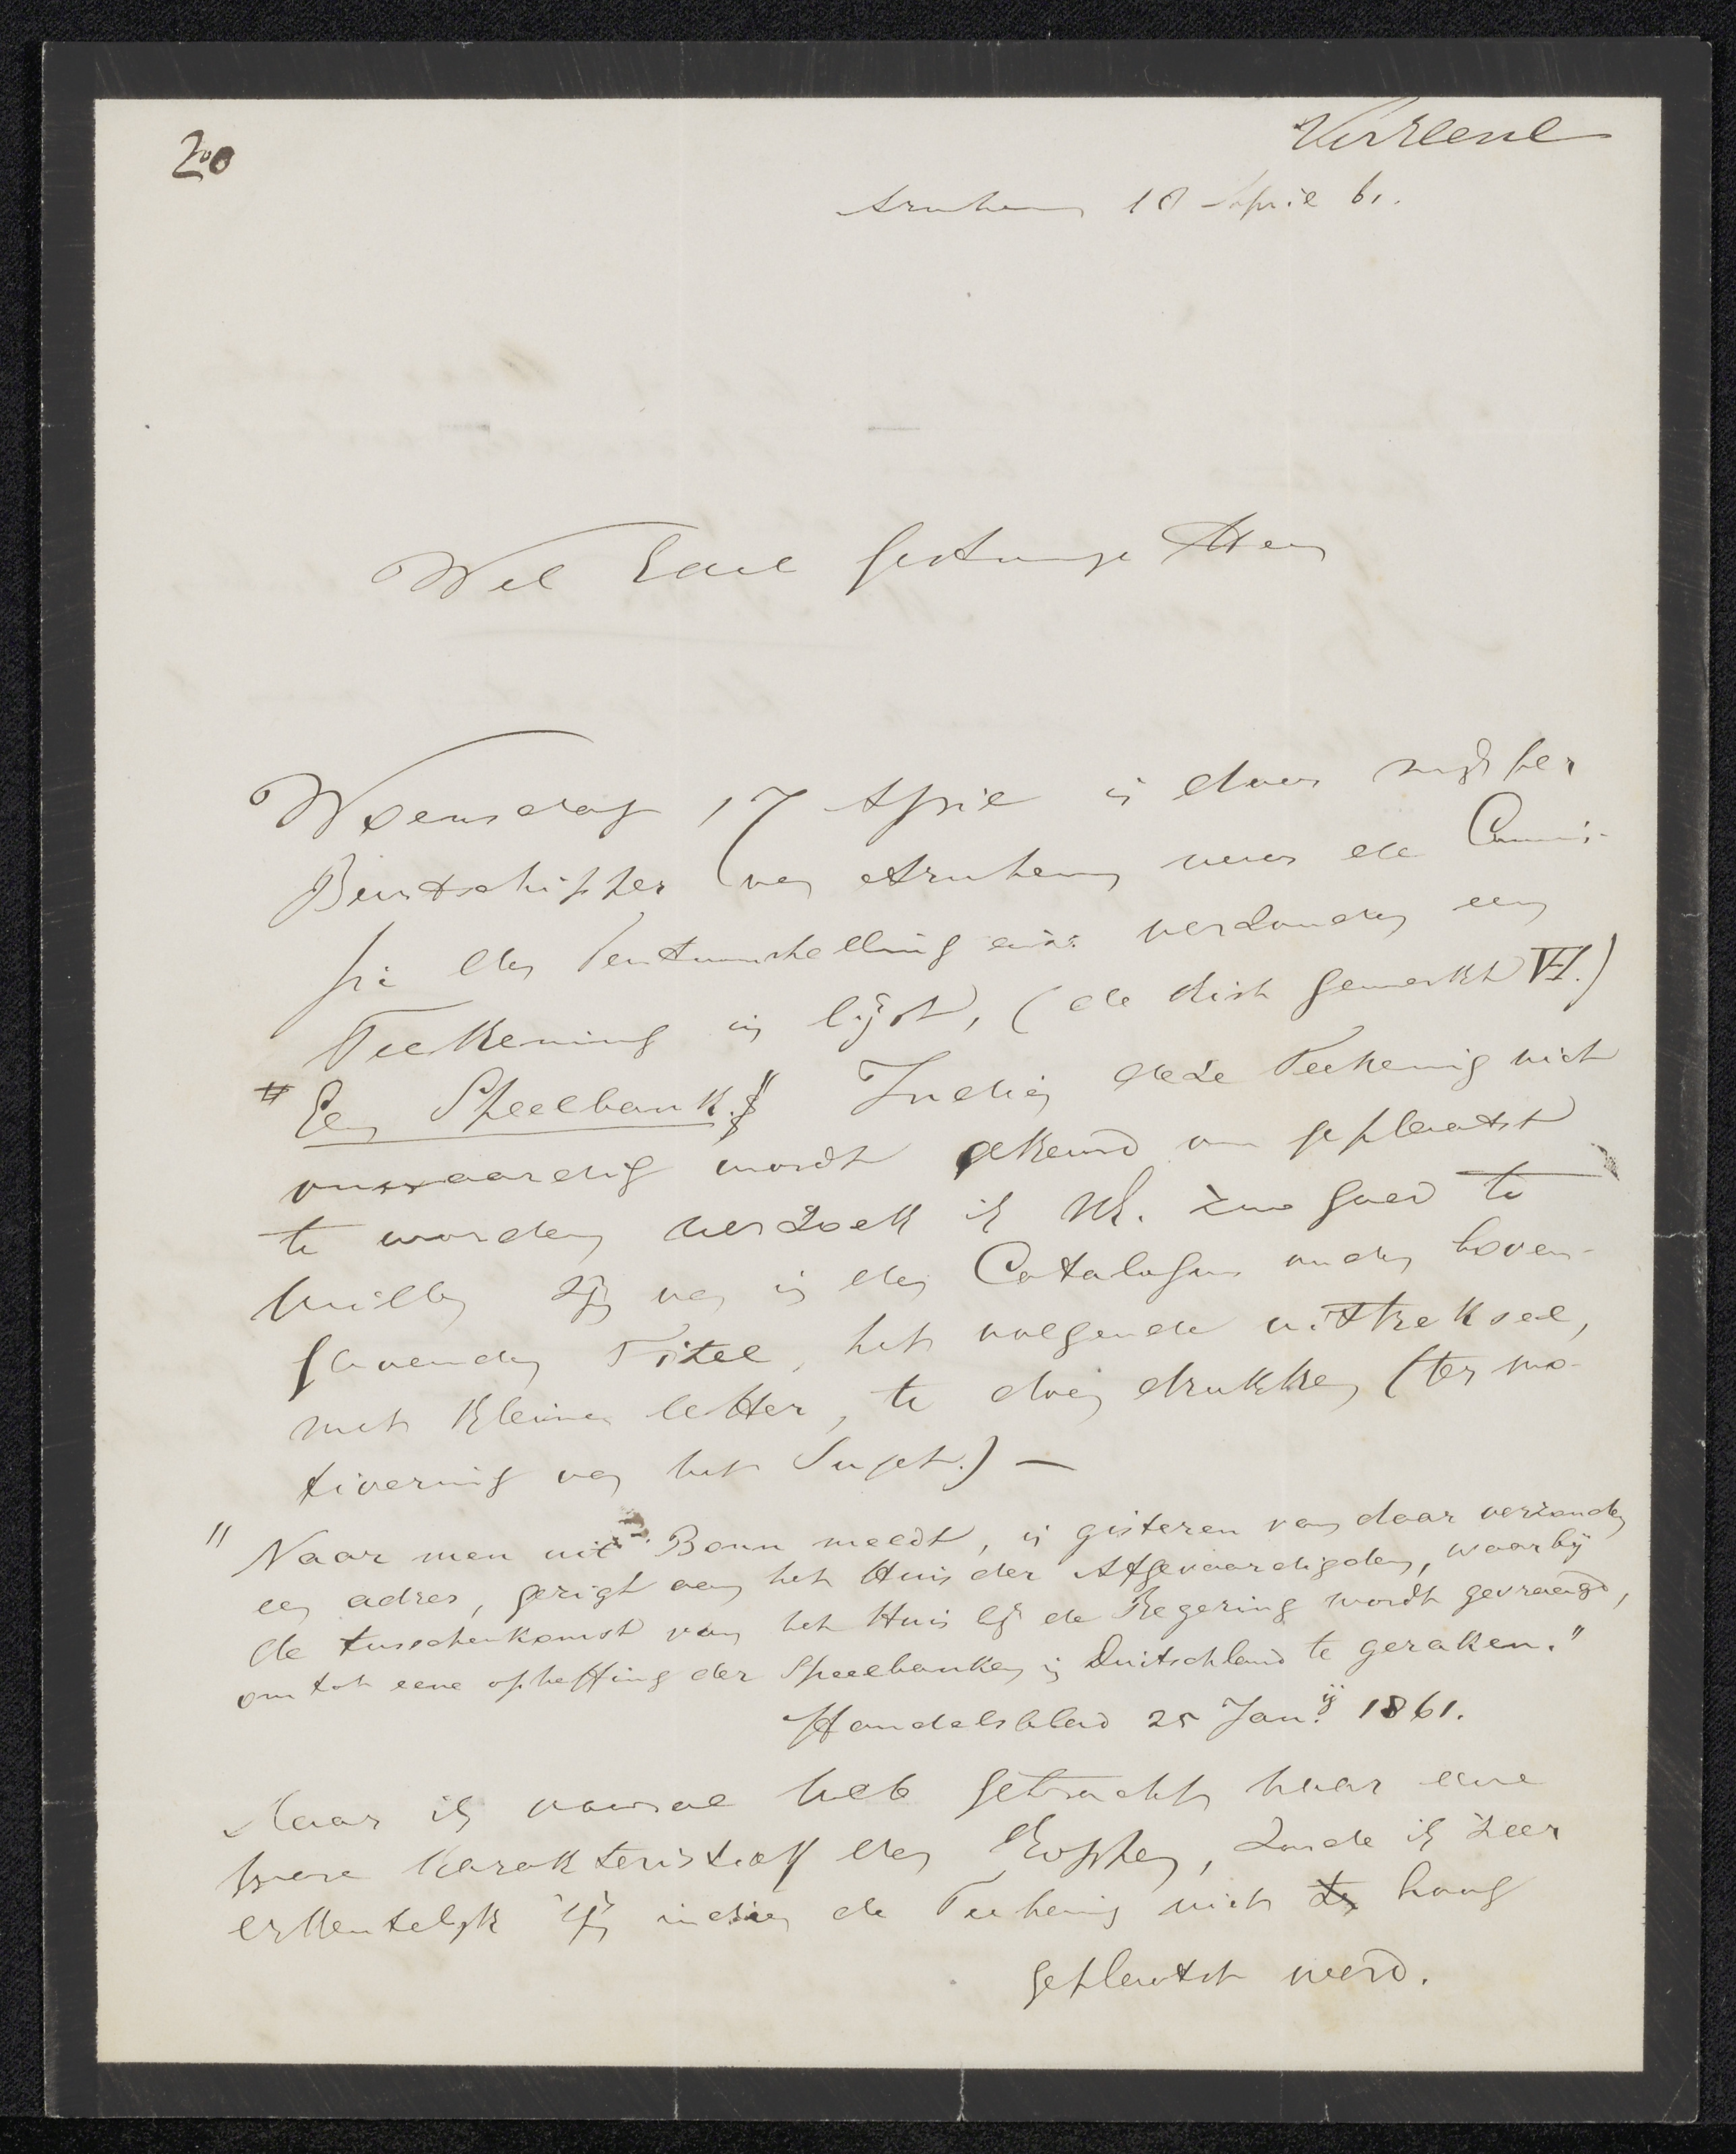 200
Verkene
Arnhem 18 April 61.
Wel Edel Gestrenge Heer
Woensdag 17 April is door mij per
Beurtschipper van Arnhem naar de Commis-
sie der Tentoonstelling verzonden een
Teekening in lijst, (de kist gemerkt VH.)
" Een Speelbank." Indien deze Teekening niet
onwaardig wordt gekeurd om geplaatst
te worden verzoek ik UE. zoo goed te
willen zijn van in den Catalogus onder boven-
staanden Titel, het volgende uittreksel,
met kleiner letter, te doen drukken (ter mo-
tivering van het Sujet.) —
" Naar men uit Bonn meldt, is gisteren van daar verzonden
een adres, gerigt aan het Huis der Afgevaardigden, waarbij
de tusschenkomst van het Huis bij de Regering wordt gevraagd,
om tot eene opheffing der Speelbanken in Duitschland te geraken."
Handelsblad 25 Jan.ij 1861.
Daar ik vooral heb getracht naar eene
ware karakteristiek der Koppen, zoude ik zeer
erkentelijk zijn indien de Teekening niet te hoog
geplaatst werd.